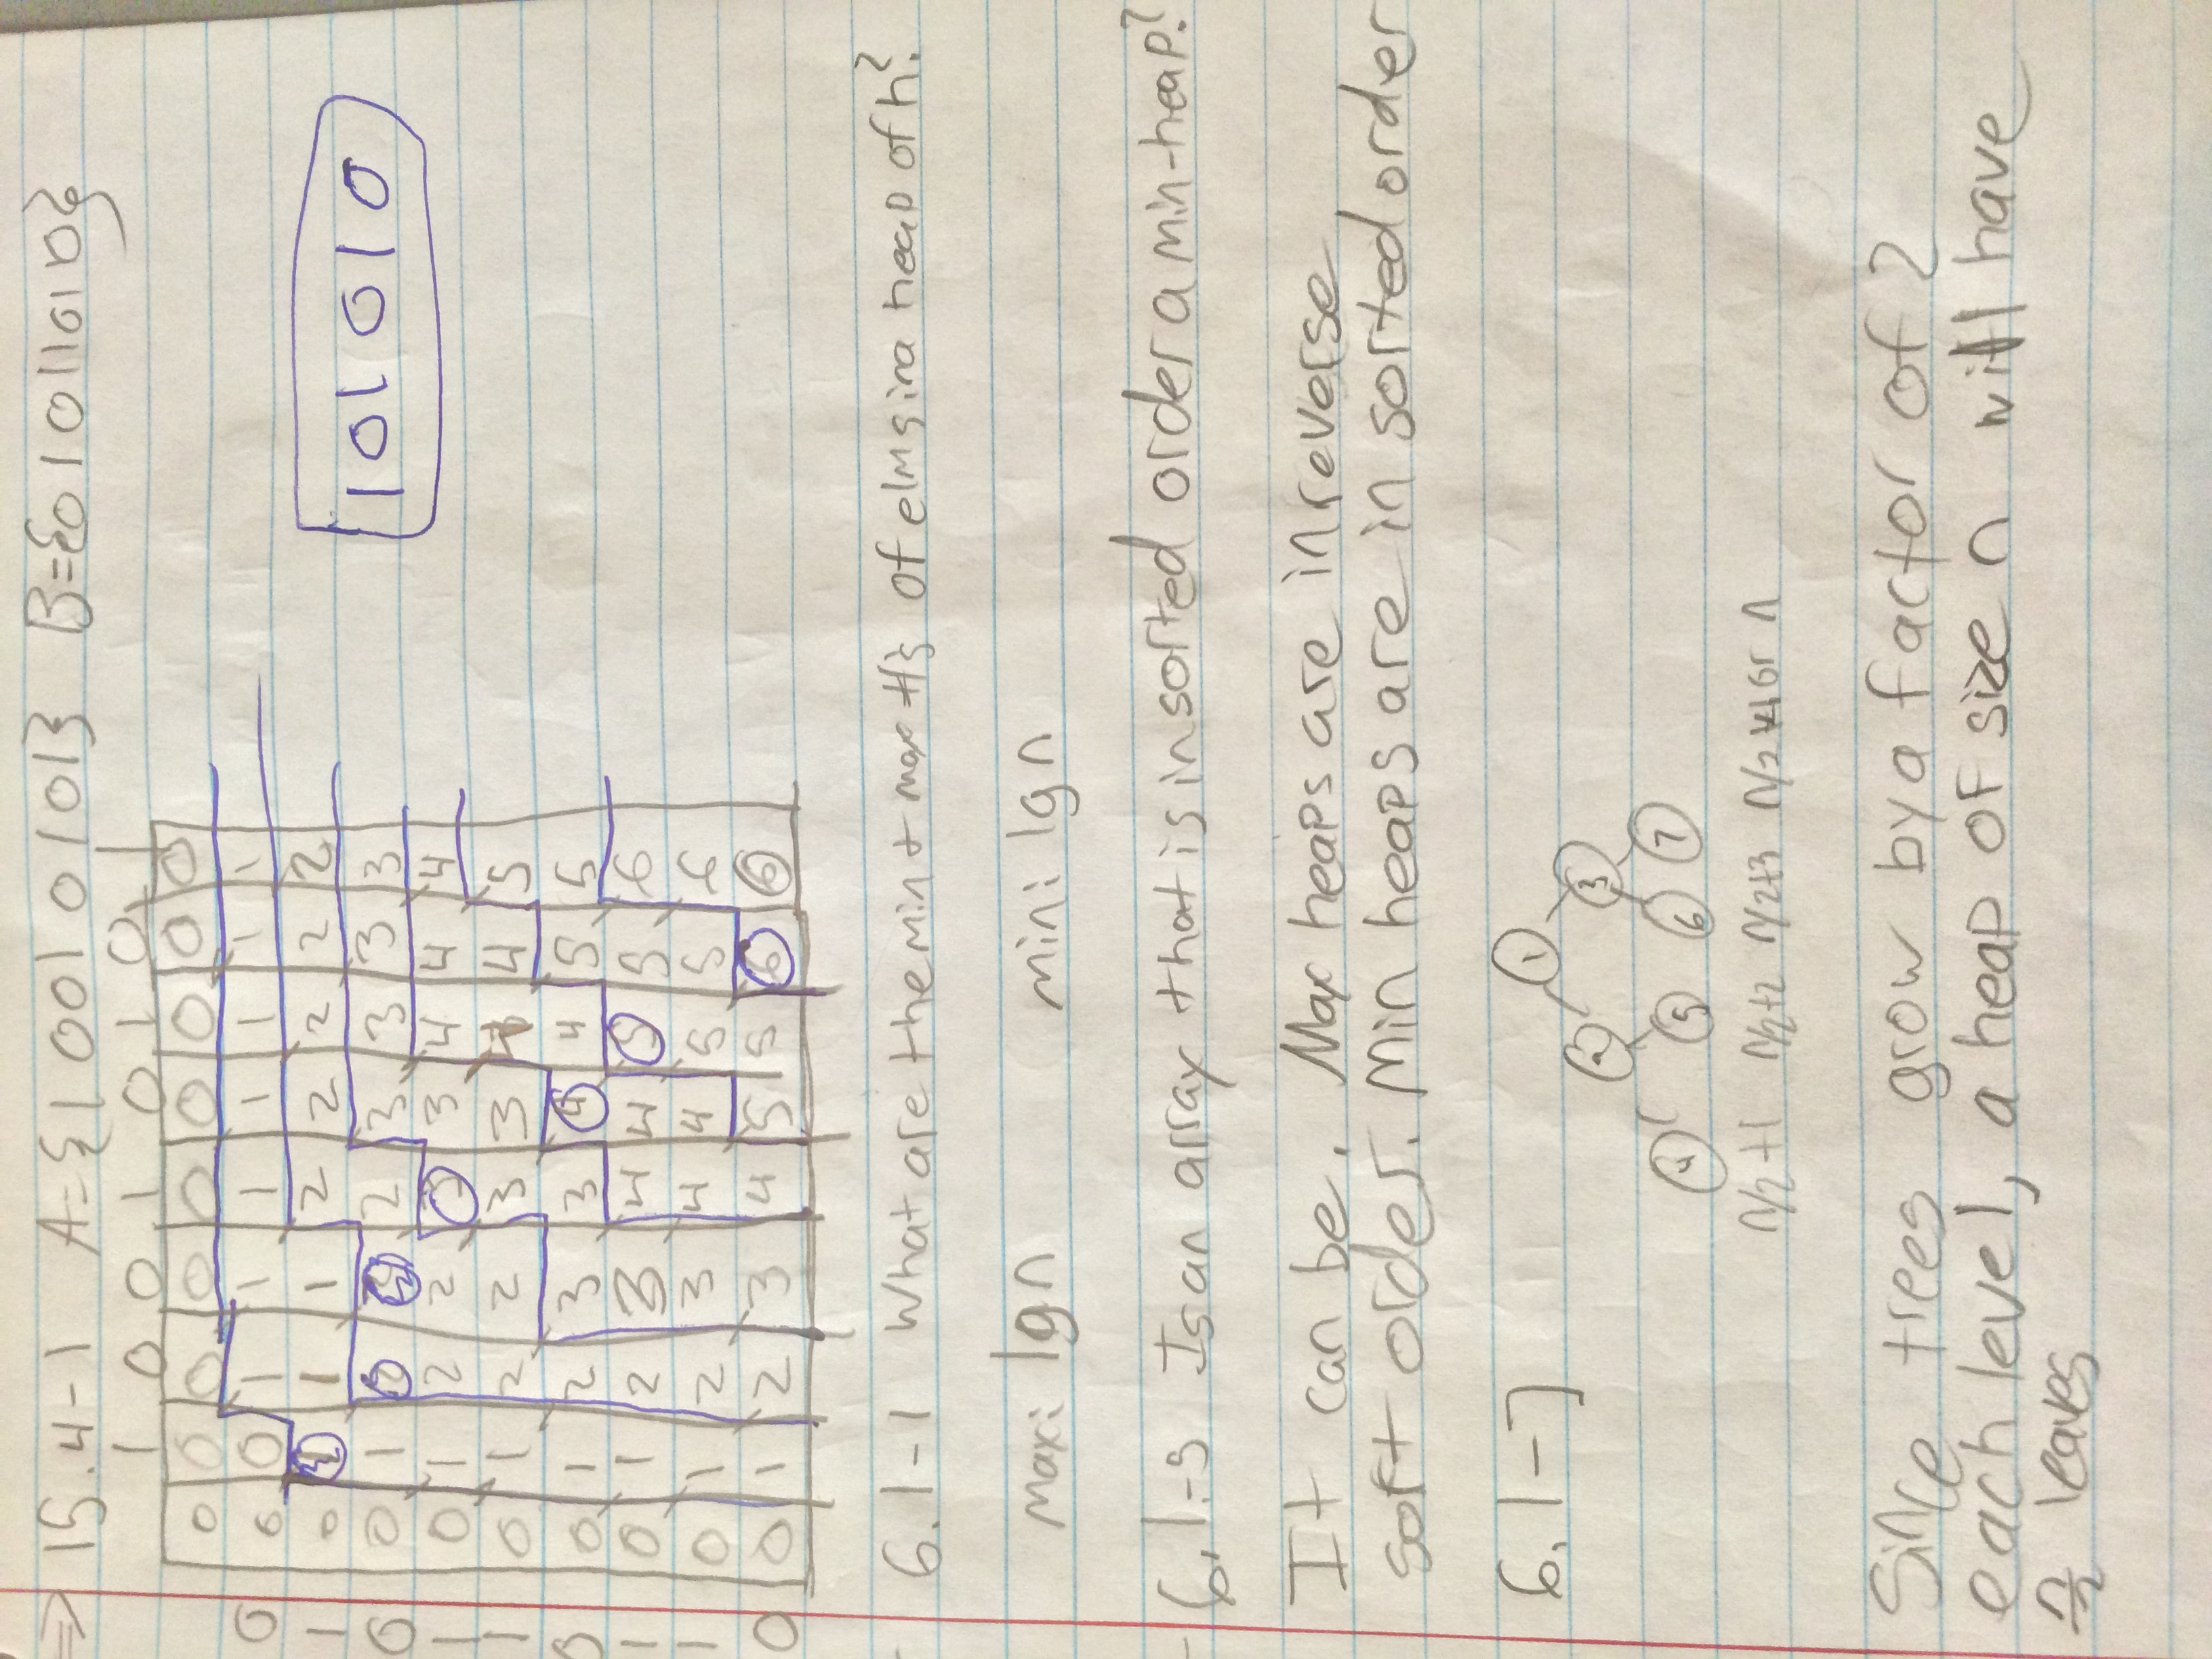 ⇒ 15.4-1 A={10010101} B={010110110}
1 0 0 1 0 1 0 1
0 0 0 0 0 0 0 0 0
0 0 0 1 1 1 1 1 1 1
1 0 1 1 1 2 2 2 2 2
0 0 1 2 2 3 3 3 3
1 0 1 2 2 3 3 4 4 4
1 0 1 2 2 3 3 4 4 5
0 0 1 2 3 3 4 4 5 5
1 0 1 2 3 4 4 5 5 6
1 0 1 2 3 4 4 5 5 6
0 0 1 2 3 4 5 5 6 6
101010
6.1-1 What are the min + max #'s of elms in a heap of h?
max: lg n min: lg n
6.1-5 Is an array that is in sorted order a min-heap?
It can be. Max heaps are in reverse
sort order. Min heaps are in sorted order
6.1-7
1
2 3
4 5 6 7
n/2+1 n/2+2 n/2+3 n/2+4 or n
Since trees grow by a factor of 2
each level, a heap of size n will have
n/2 leaves